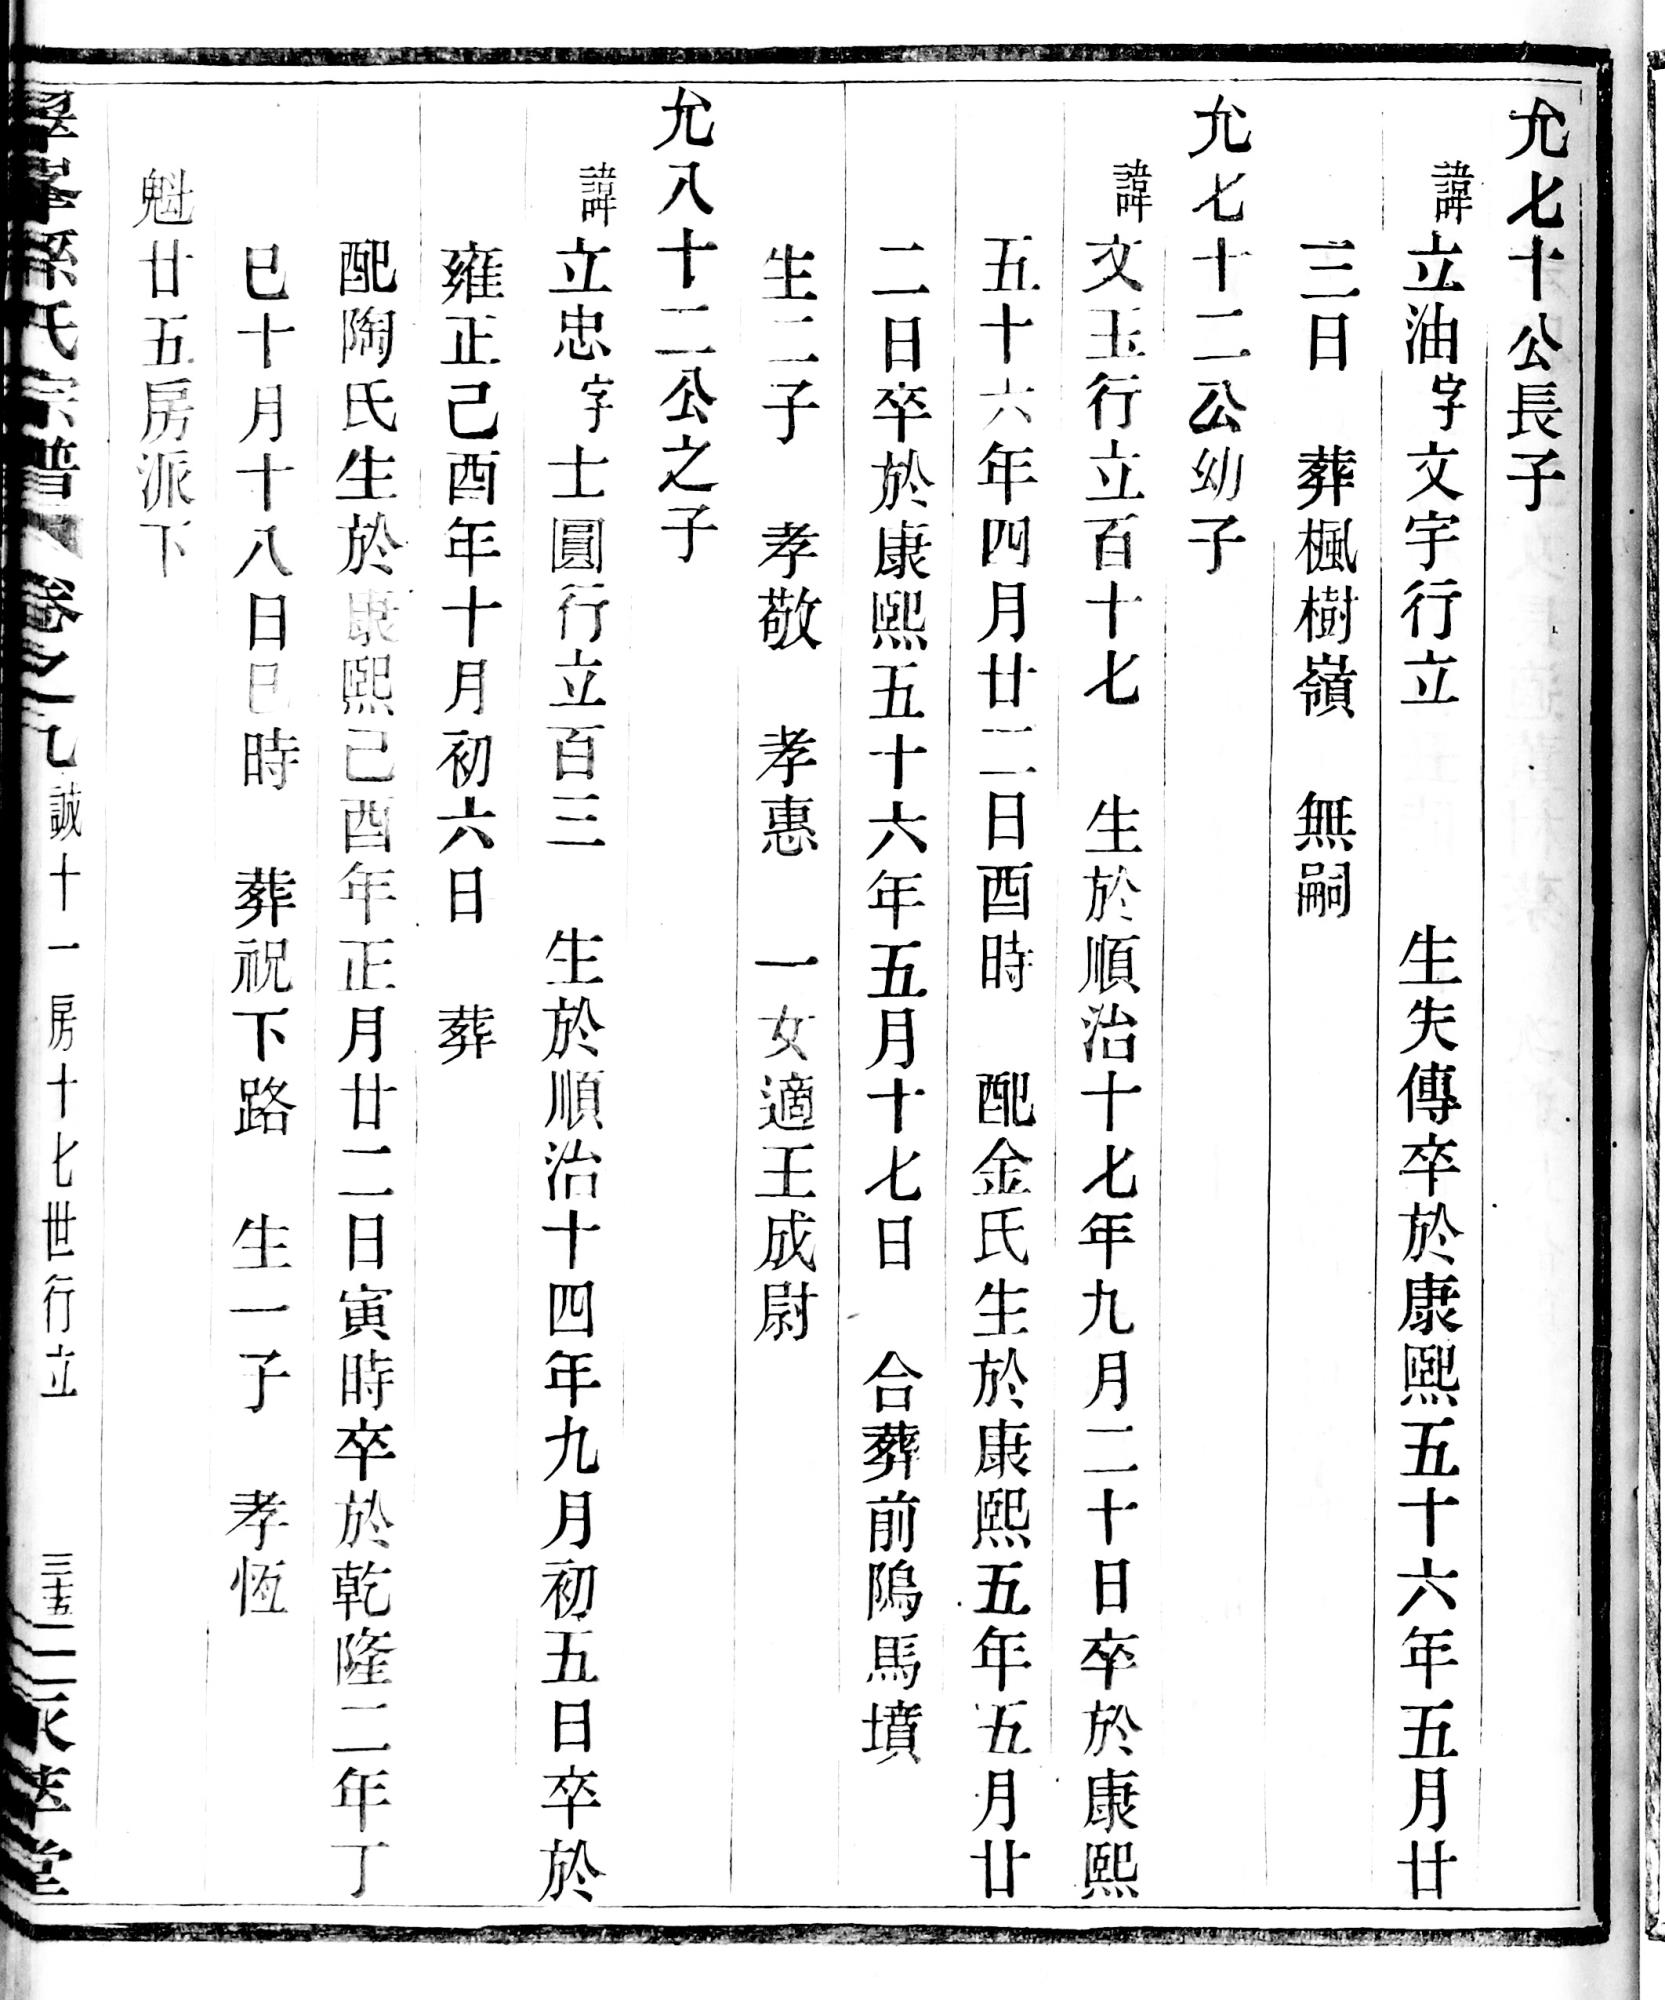 允七十公長子
諱立油字文宇行立　生失傳卒於康熙五十六年五月廿
三日　葬楓樹嶺　無嗣
允七十二公幼子
諱文玉行立百十七　生於順治十七年九月二十日卒於康熙
五十六年四月廿二日酉時　配金氏生於康熙五年五月廿
二日卒於康熙五十六年五月十七日　合葬前隝馬墳
生二子　孝敬　孝惠　一女適王成尉
允八十二公之子
諱立忠字士圓行立百三　生於順治十四年九月初五日卒於
雍正己酉年十月初六日　葬
配陶氏生於康熙己酉年正月廿二日寅時卒於乾隆二年丁
巳十月十八日巳時　葬祝下路　生一子　孝恆
魁廿五房派下
峯孫氏宗譜　卷之九　誠十一房十七世行立　三十五　萃堂